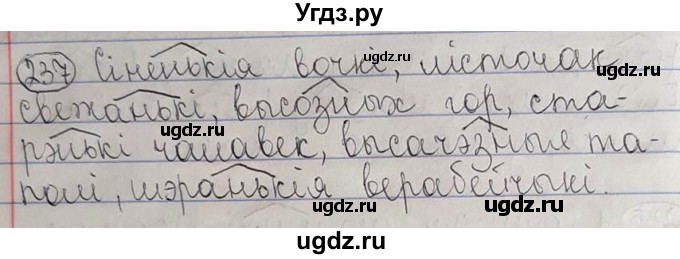 Угдз.ру
237 Сіненькія вочкі, лісточак
свежанькі, высозных гор, ста-
рэнькі чалавек, высачэзные та-
полі, шэранькія верабейчыкі.
ugdz.ru
ugdz.ru
ugdz.ru
ugdz.ru
ugdz.ru
ugdz.ru
ugdz.ru
ugdz.ru